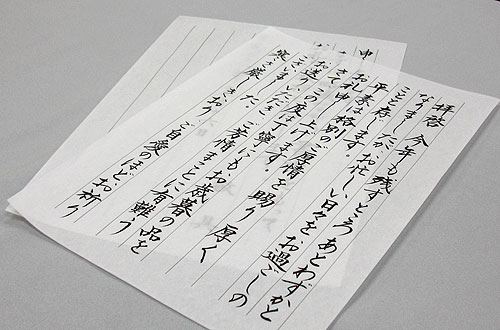 拝啓 今年も残すところあとわずかと
なりましたが、お忙しい日々をお過ごしの
ことと存じます。
平素は格別のご厚情を賜り 厚く
お礼申し上げます。
さて、この度は丁寧にも、お歳暮の品を
お送りいただき、ご芳情まことに有難う
ございました。
寒さ厳しきおり ご自愛のほど、お祈り
申